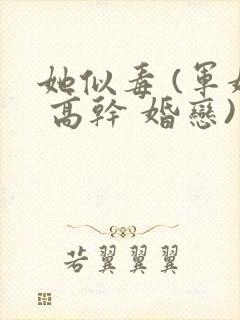 她似毒(軍
高幹 婚戀)
若翼翼翼